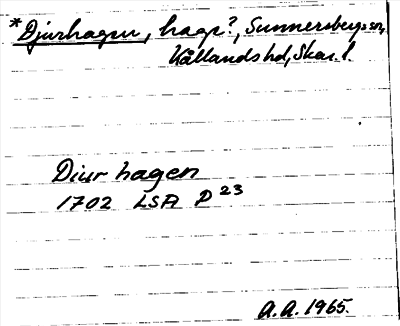 *Djurhagen, hage?, Sunnersbergs sn,
Kållands hd, Skar. l.
Diur hagen
1702 LSA P 23
A.A. 1965.